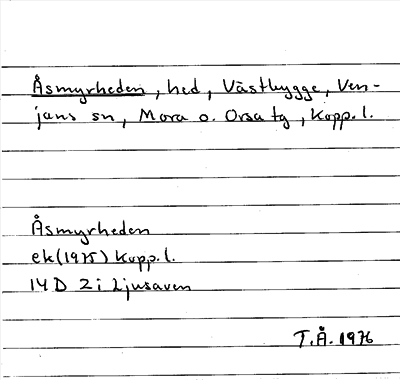 Åsmyrheden, hed, Västbygge, Ven-
jans sn, Mora o. Orsa tg, Kopp. l.
Åsmyrheden
ek (1975) Kopp. l.
14 D 2 i Ljusaven
T.Å. 1976